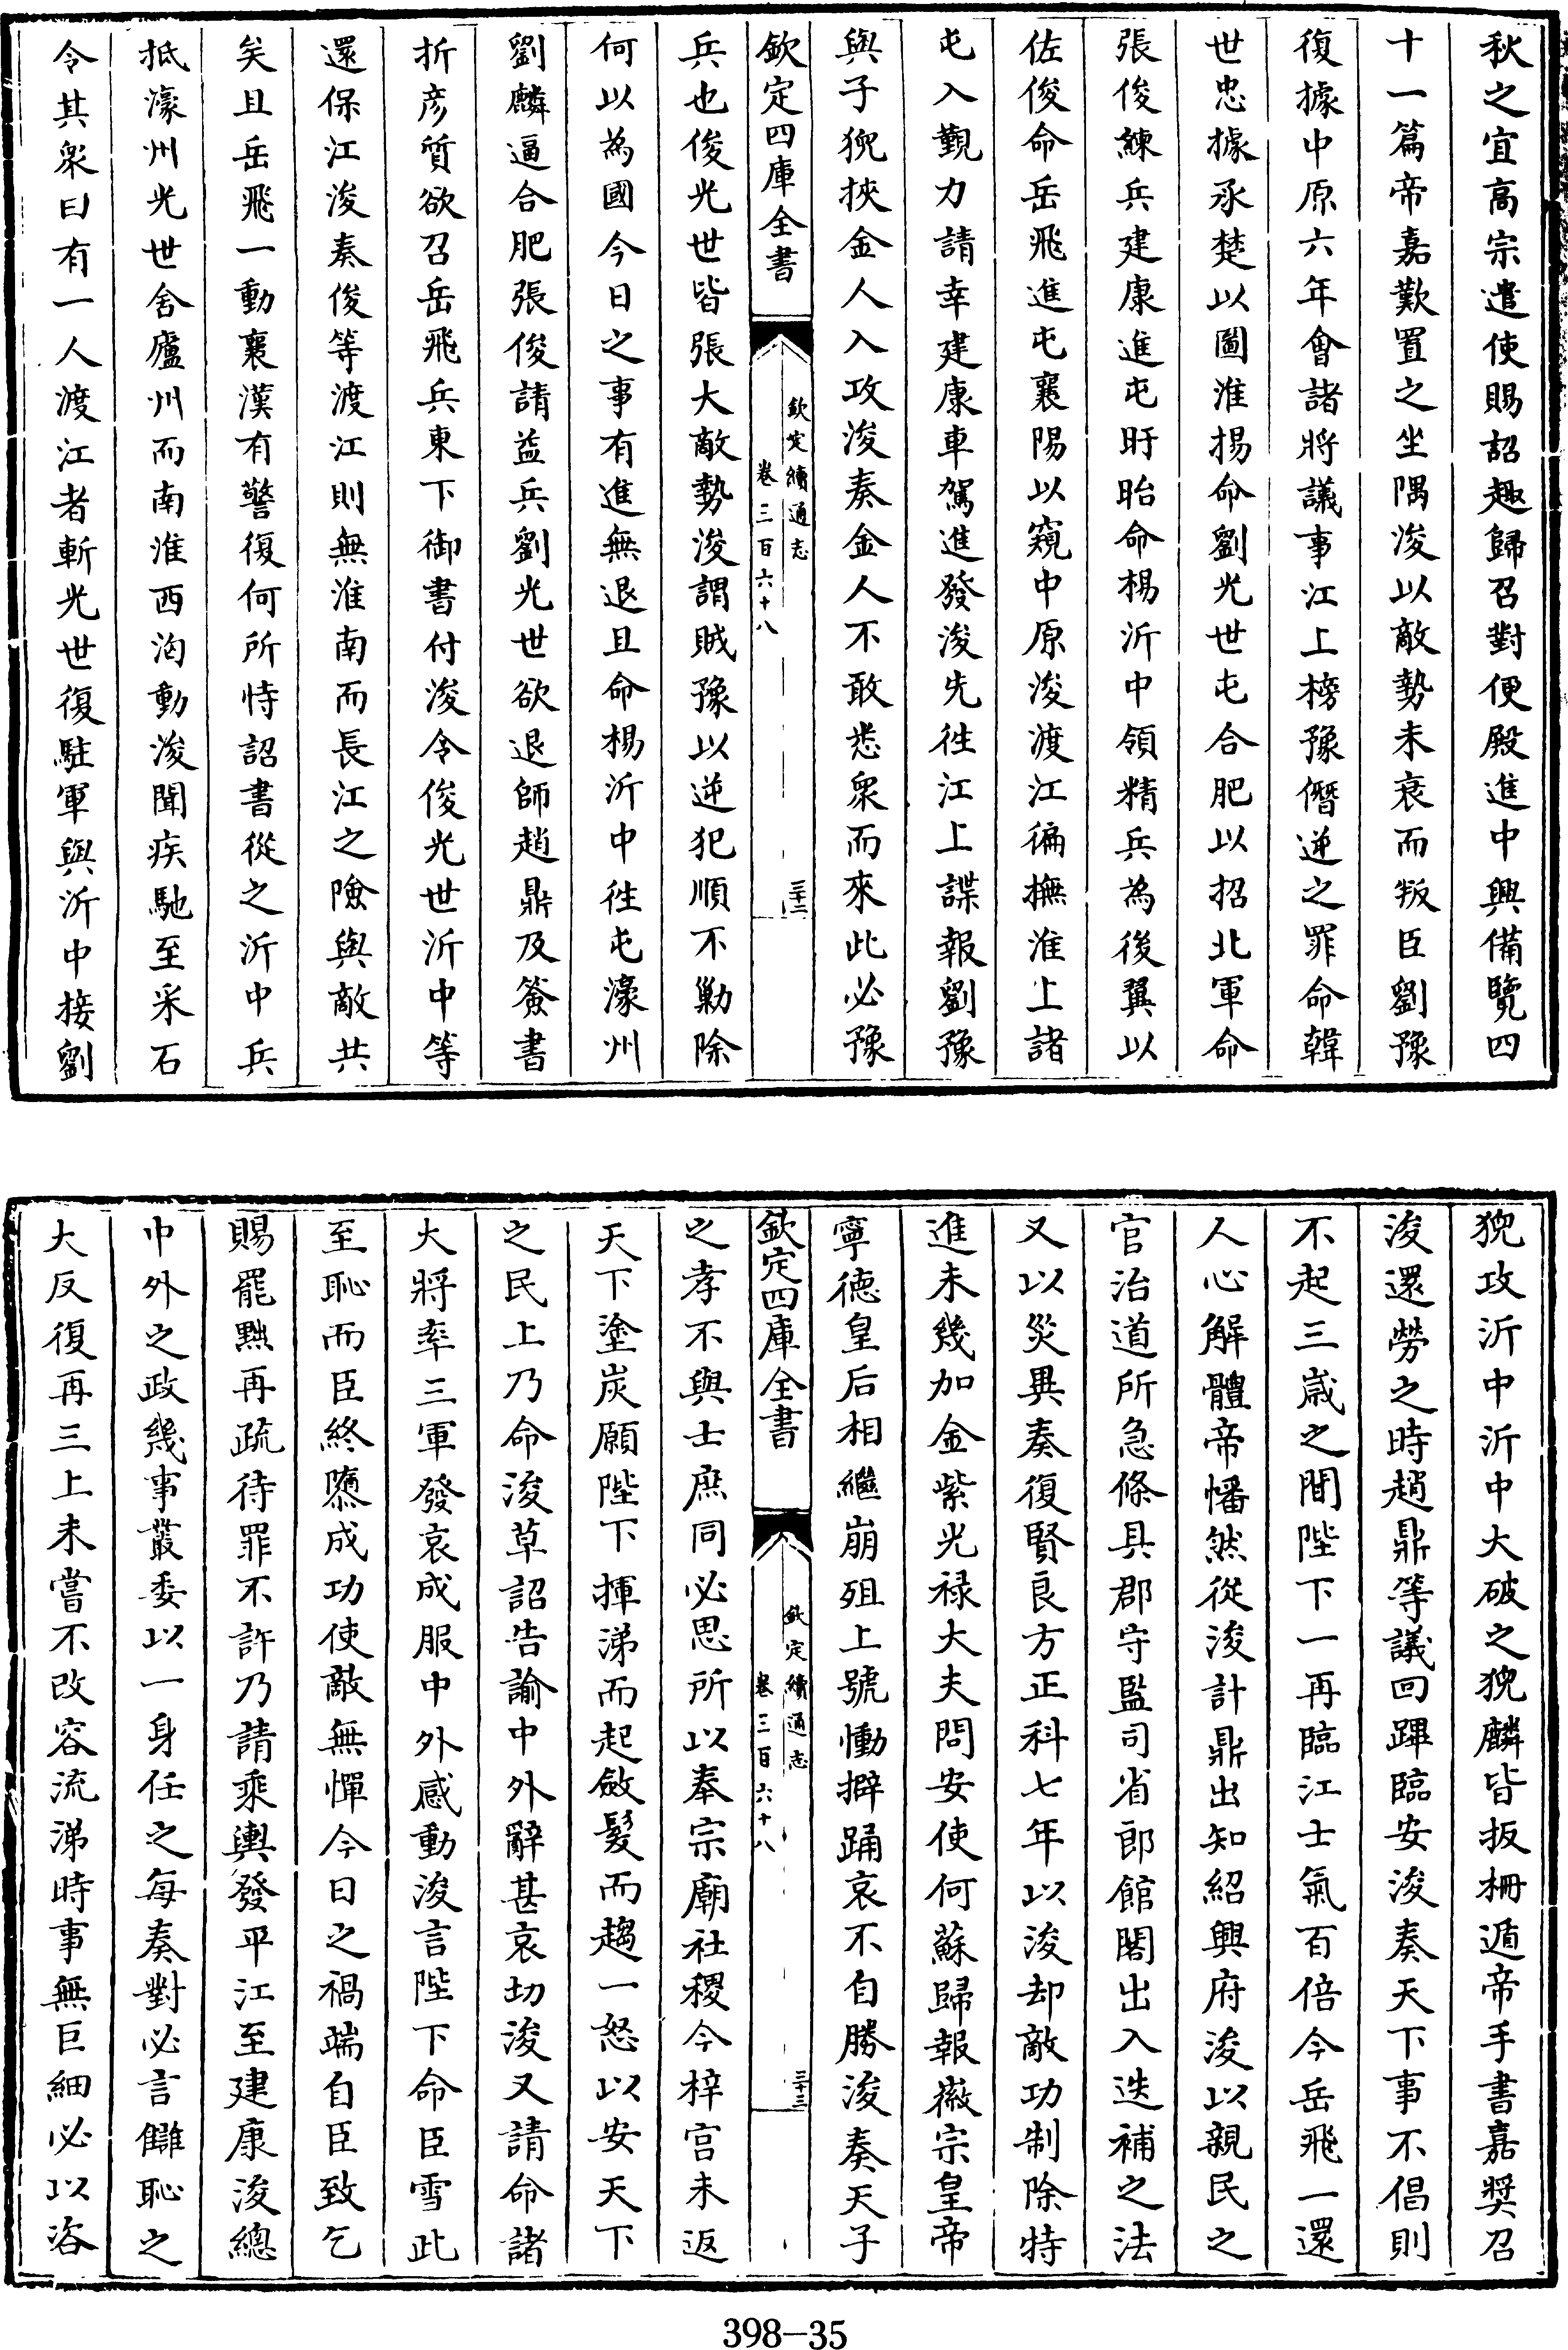 秋之宜高宗遣使賜詔趣歸召對便殿進中興備覽四
十一篇帝嘉歎置之坐隅浚以敵勢未衰而叛臣劉豫
復據中原六年會諸將議事江上榜豫僭逆之罪命韓
世忠據承楚以圖淮揚命劉光世屯合肥以招北軍命
張俊練兵建康進屯盱眙命楊沂中領精兵為後翼以
佐俊命岳飛進屯襄陽以窺中原浚渡江徧撫淮上諸
屯入覲力請幸建康車駕進發浚先徃江上諜報劉豫
與子猊挾金人入攻浚奏金人不敢悉衆而來此必豫
欽定四庫全書
欽定續通志
卷三百六十八
三十二
兵也俊光世皆張大敵勢浚謂賊豫以逆犯順不勦除
何以為國今日之事有進無退且命楊沂中徃屯濠州
劉麟逼合肥張俊請益兵劉光世欲退師趙鼎及簽書
折彥質欲召岳飛兵東下御書付浚令俊光世沂中等
還保江浚奏俊等渡江則無淮南而長江之險與敵共
矣且岳飛一動襄漢有警復何所恃詔書從之沂中兵
抵濠州光世舍廬州而南淮西洶動浚聞疾馳至采石
令其衆曰有一人渡江者斬光世復駐軍與沂中接劉
猊攻沂中沂中大破之猊麟皆拔柵遁帝手書嘉奬召
浚還勞之時趙鼎等議回蹕臨安浚奏天下事不倡則
不起三歲之間陛下一再臨江士氣百倍今岳飛一還
人心解體帝幡然從浚計鼎出知紹興府浚以親民之
官治道所急條具郡守監司省郎館閣出入迭補之法
又以災異奏復賢良方正科七年以浚却敵功制除特
進未幾加金紫光禄大夫問安使何蘇歸報徽宗皇帝
寧德皇后相繼崩殂上號慟擗踊哀不自勝浚奏天子
欽定四庫全書
欽定續通志
卷三百六十八
三十三
之孝不與士庶同必思所以奉宗廟社稷今梓宮未返
天下塗炭願陛下揮涕而起斂髮而趨一怒以安天下
之民上乃命浚草詔告諭中外辭甚哀切浚又請命諸
大將率三軍發哀成服中外感動浚言陛下命臣雪此
至恥而臣終隳成功使敵無憚今日之禍端自臣致乞
賜罷黜再疏待罪不許乃請乘輿發平江至建康浚總
中外之政幾事叢委以一身任之每奏對必言讎恥之
大反復再三上未嘗不改容流涕時事無巨細必以咨
398-35